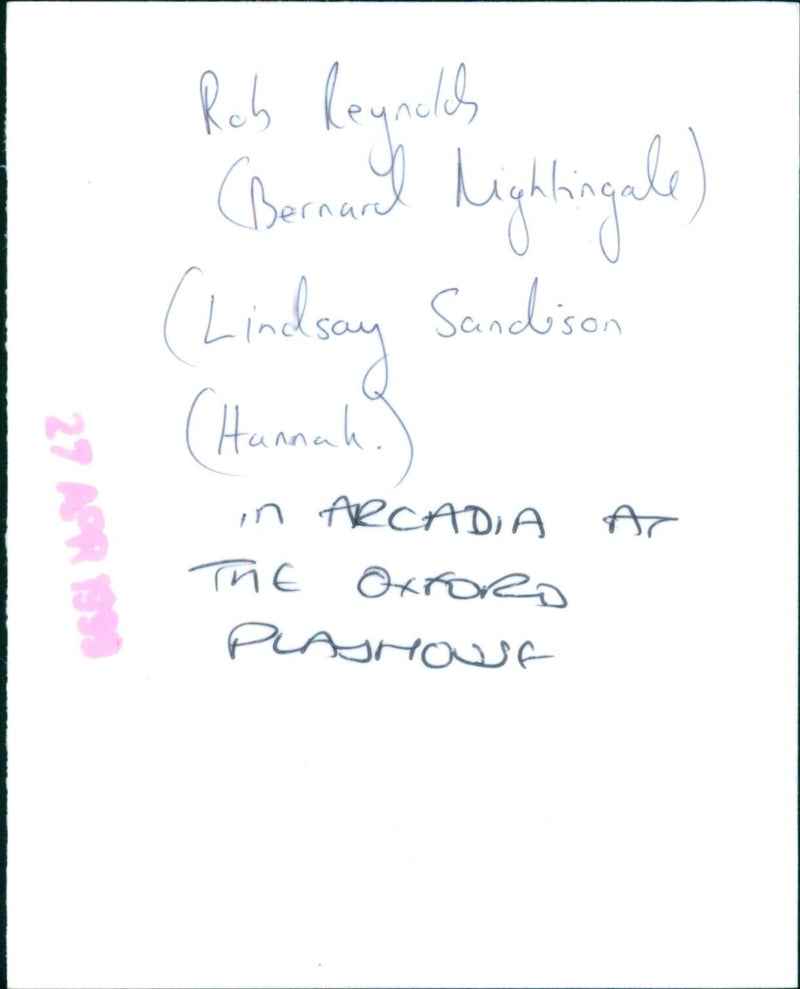 Rob Reynolds
(Bernard Nightingale)
(Lindsay Sandison
(Hannah.)
in ARCADIA AT
THE OXFORD
PLAYHOUSE
27 APR 1999